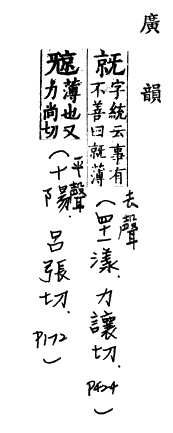 廣韻
𣄴字統云事有
不善曰𣄴薄
(去聲 四十一漾. 力讓切. P424)
薄也又
力尚切
(平聲 十陽. 呂張切. P172)